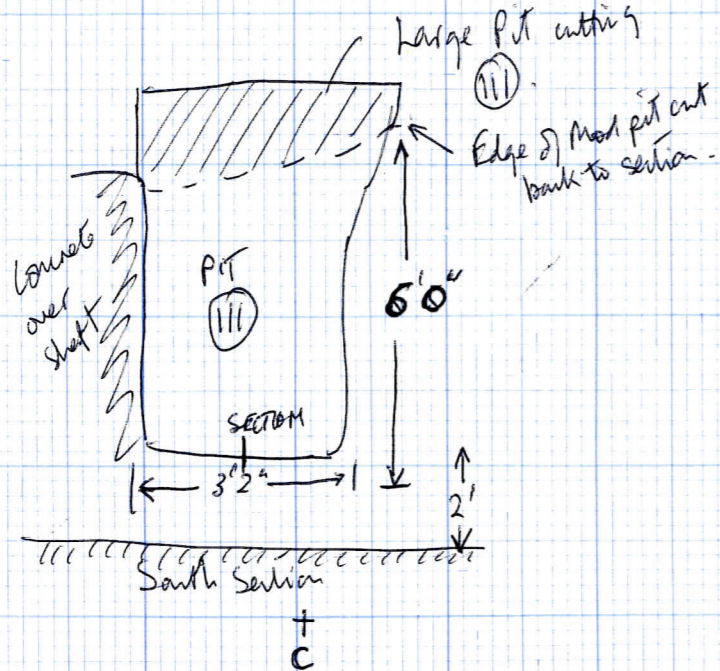 Large Pit cutting
III.
Edge of Mod pit cut
back to section.
Concrete
over
shaft
PIT
III
6'0"
SECTION
3'2"
2'
South Section
C